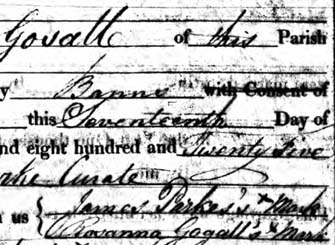 Gosall of this Parish
y Banns with Consent of
this Seventeenth Day of
nd eight hundred and Twenty Five
Curate
n us { James Perkes's x Mark
Rosanna Gogall's x Mark